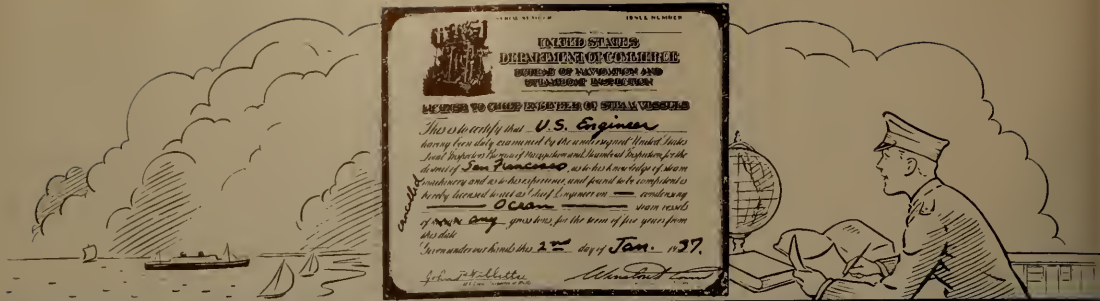 ISSUE NUMBER
UNITED STATES
DEPARTMENT OF COMMERCE
BUREAU OF NAVIGATION AND
STEAMBOAT INSPECTION
LICENSE TO CHIEF ENGINEER OF STEAM VESSELS
This is to certify that U.S. Engineer
having been duly examined by the undersigned United States
Local Inspectors Bureau of Navigation and Steamboat Inspection, for the
district of San Francisco, as to his knowledge of steam
machinery and as to his experience, and found to be competent is
hereby licensed to act as Chief Engineer on — condensing
Ocean steam vessels
of any gross tons, for the term of five years from
this date
Given under our hands this 2nd day of Jan. 1937.
cancelled